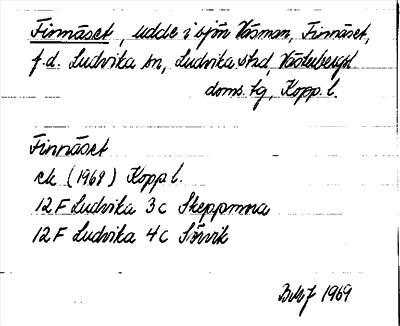 Finnäset, udde i sjön Väsman, Finnäset,
f.d. Ludvika sn, Ludvika stad, Västerbergsl
doms.tg, Kopp. l.
Finnäset
ek (1968) Kopp l.
12 F Ludvika 3 c Skeppmora
12 F Ludvika 4 c Sörvik
1969